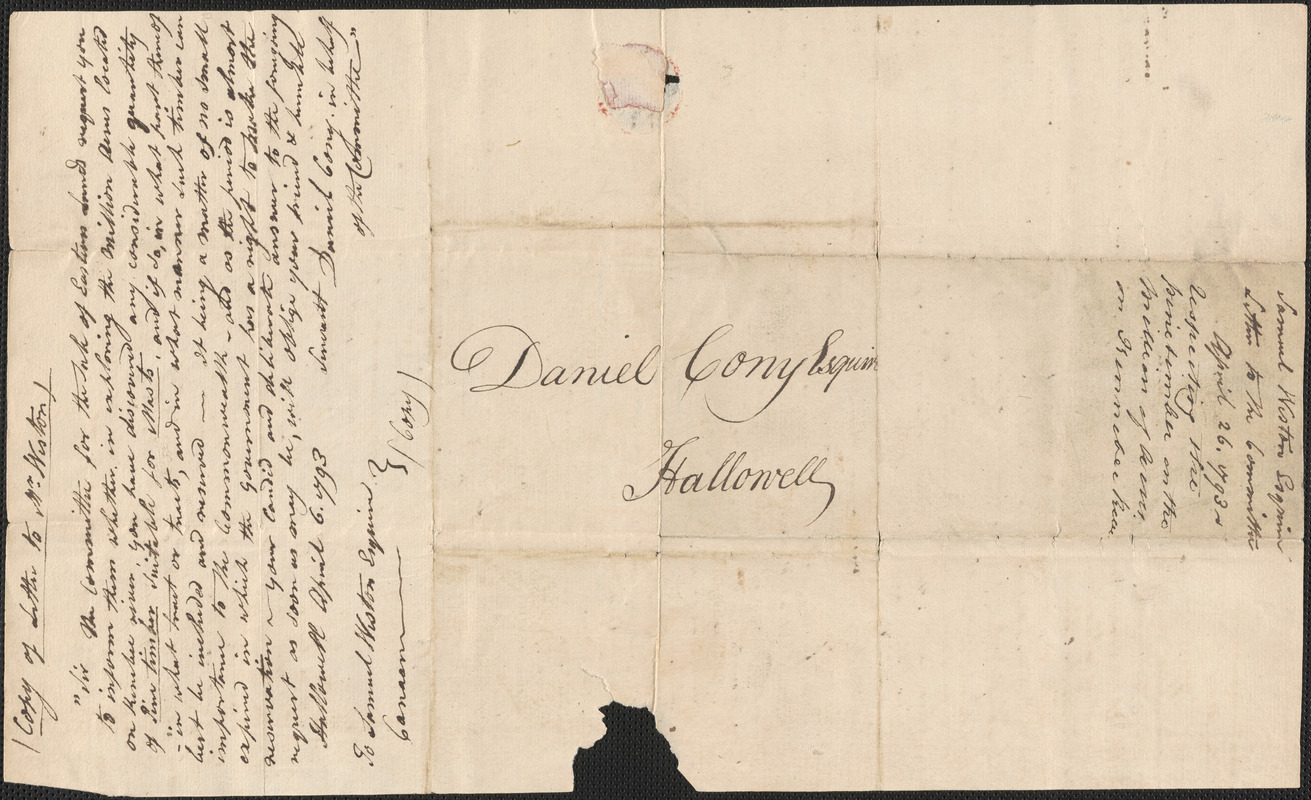 (Copy of Letter to Mr. Weston)
"Sir The Committee for the sale of Eastern Lands request you
to inform them whether in exploring the million Acres located
on Kennebec river, you have discovered any considerable quantity
of Pine timber suitable for Masts, and if so, in what part thereof
- in what tract or tracts, and in what manner such timber can
best be included and reserved — it being a matter of no small
importance to the Commonwealth - and as the period is almost
expired in which the Government has a right to make the
reservation a your candid and deliberate answer to the foregoing
request as soon as may be, will oblige your friend & humble
Servant Daniel Cony. in behalf
of the Committee"
Hallowell April 6. 1793
To Samuel Weston Esquire
Canaan
(Copy)
Daniel Cony Esquire
Hallowell
Samuel Weston Esquire
Letter to the Committee
April 26. 1793
respecting the
Pine timber on the
Million of Acres
on Kennebec River